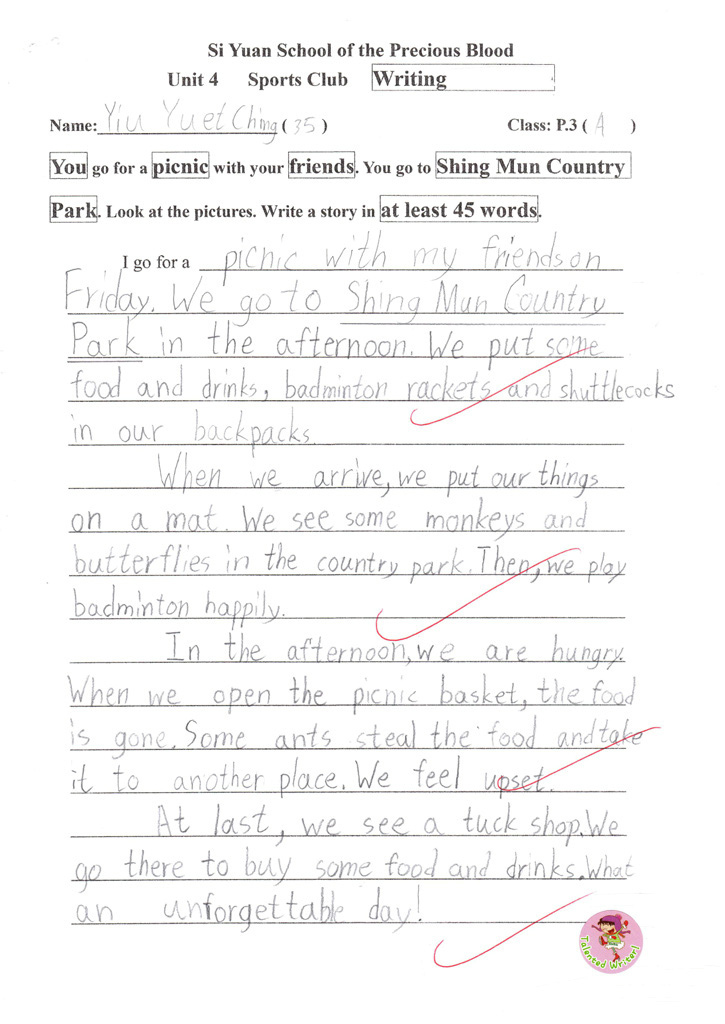 Si Yuan School of the Precious Blood
Unit 4 Sports Club Writing
Name: Yiu Yuet Ching ( 35 ) Class: P.3 ( A )
You go for a picnic with your friends. You go to Shing Mun Country
Park. Look at the pictures. Write a story in at least 45 words.
I go for a picnic with my friends on
Friday. We go to Shing Mun Country
Park in the afternoon. We put some
food and drinks, badminton rackets and shuttlecocks
in our backpacks.
When we arrive, we put our things
on a mat. We see some monkeys and
butterflies in the country park. Then, we play
badminton happily.
In the afternoon, we are hungry.
When we open the picnic basket, the food
is gone. Some ants steal the food and take
it to another place. We feel upset.
At last, we see a tuck shop. We
go there to buy some food and drinks. What
an unforgettable day!
Talented Writer!